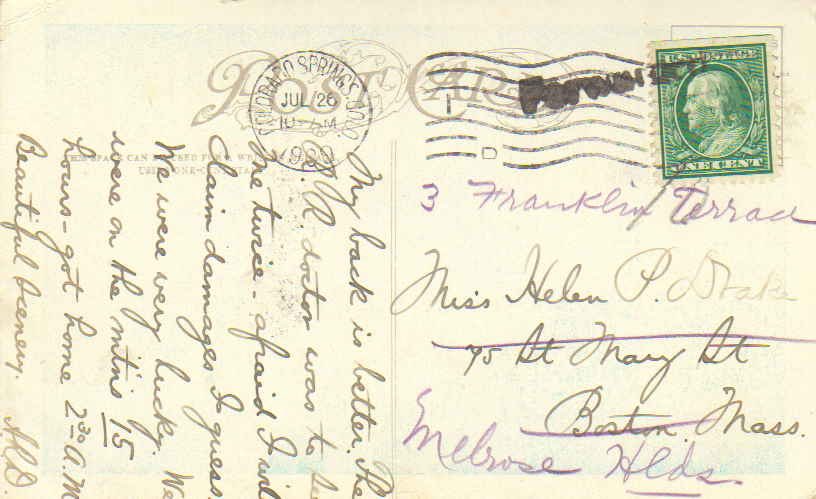 POST CARD
COLORADO SPRINGS, COLO.
JUL 26
1909
1
D
U.S. POSTAGE
ONE CENT
THIS SPACE CAN BE USED FOR
USE ONE-CENT STA
3 Franklin Terrace
Miss Helen P. Drake
75 St Mary St
Boston. Mass.
Melrose Hlds.
My back is better. The
R.R. doctor was to see
me twice - afraid I will
Claim damages I guess.
We were very lucky. We
were on the mtns 15
hours - got home 2 30 A.M
Beautiful Scenery.